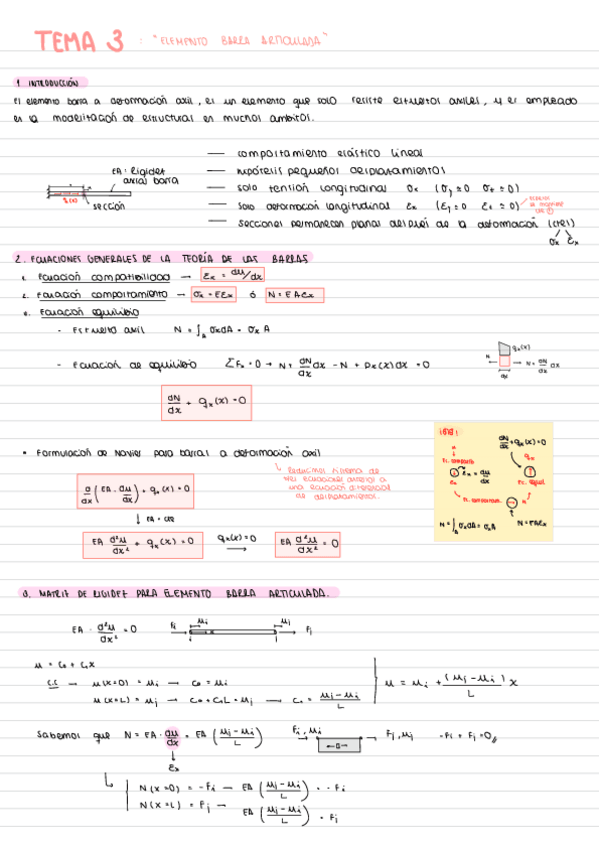 TEMA 3 : "ELEMENTO BARRA ARTICULADA"
1 INTRODUCCIÓN
El elemento barra a deformación axil, es un elemento que solo resiste esfuerzos axiles, y es empleado
en la modelización de estructuras en muchos ámbitos.
— comportamiento elástico lineal
EA: Rigidez axial barra
— hipótesis pequeños desplazamientos
— solo tensión longitudinal σx
sección
— solo deformación longitudinal εx
— Secciones permanecen planas después de la deformación (cte)
σx εx
2. ECUACIONES GENERALES DE LA TEORÍA DE LAS BARRAS
1. Ecuación compatibilidad → εx = du/dx
2. Ecuación comportamiento → σx = EEx ó N = EAEx
3. Ecuación equilibrio
- Esfuerzo axil N = ∫A σx dA = σx A
- Ecuación de equilibrio ΣFx = 0 → N + dN/dx dx - N + Px(x) dx = 0
dN/dx + qx(x) = 0
• Formulación de Navier para barras a deformación axil
↳ Reducimos sistema de
tres ecuaciones anterior a
una ecuación diferencial
de desplazamientos.
d/dx (EA · du/dx) + qx(x) = 0
↓ EA = cte
EA d²u/dx² + qx(x) = 0 qx(x) = 0 → EA d²u/dx² = 0
dN/dx + qx(x) = 0
εx = du/dx
N = ∫A σx dA = σx A N = EAEx
3. MATRIZ DE RIGIDEZ PARA ELEMENTO BARRA ARTICULADA.
EA · d²u/dx² = 0 Fi μi μj Fj
u = C0 + C1x
C.C → u(x=0) = ui → C0 = ui
u(x=L) = uj → C0 + C1L = uj → C1 = (uj - ui)/L
u = ui + (uj - ui)/L x
Sabemos que N = EA · du/dx = EA (uj - ui / L) Fi, ui Fj, uj -Fi + Fj = 0
↓ εx
N(x=0) = -Fi → EA (uj - ui / L) = -Fi
N(x=L) = Fj → EA (uj - ui / L) = Fj